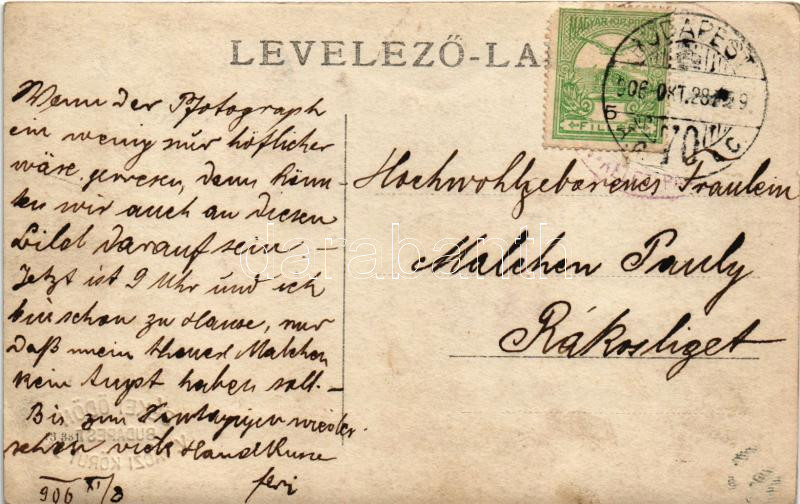 LEVELEZŐ-LA
MAGYAR KIR. POSTA
5
FILLÉR
BUDAPEST
906 OKT. 28
Wenn der Pfotograph
ein wenig nur höflicher
wäre gewesen, dann könn-
ten wir auch an diesen
Bild darauf sein. –
Jetzt ist 9 Uhr und ich
bin schon zu Hause, nur
daß mein theures Malchen
kein Angst haben soll. –
Bis zum wieder
sehen viele Handküsse
feri
906 XI/8
Hochwohlgeborenes Fräulein
Malchen Pauly
Rákosliget
darabanth
BUDAPEST